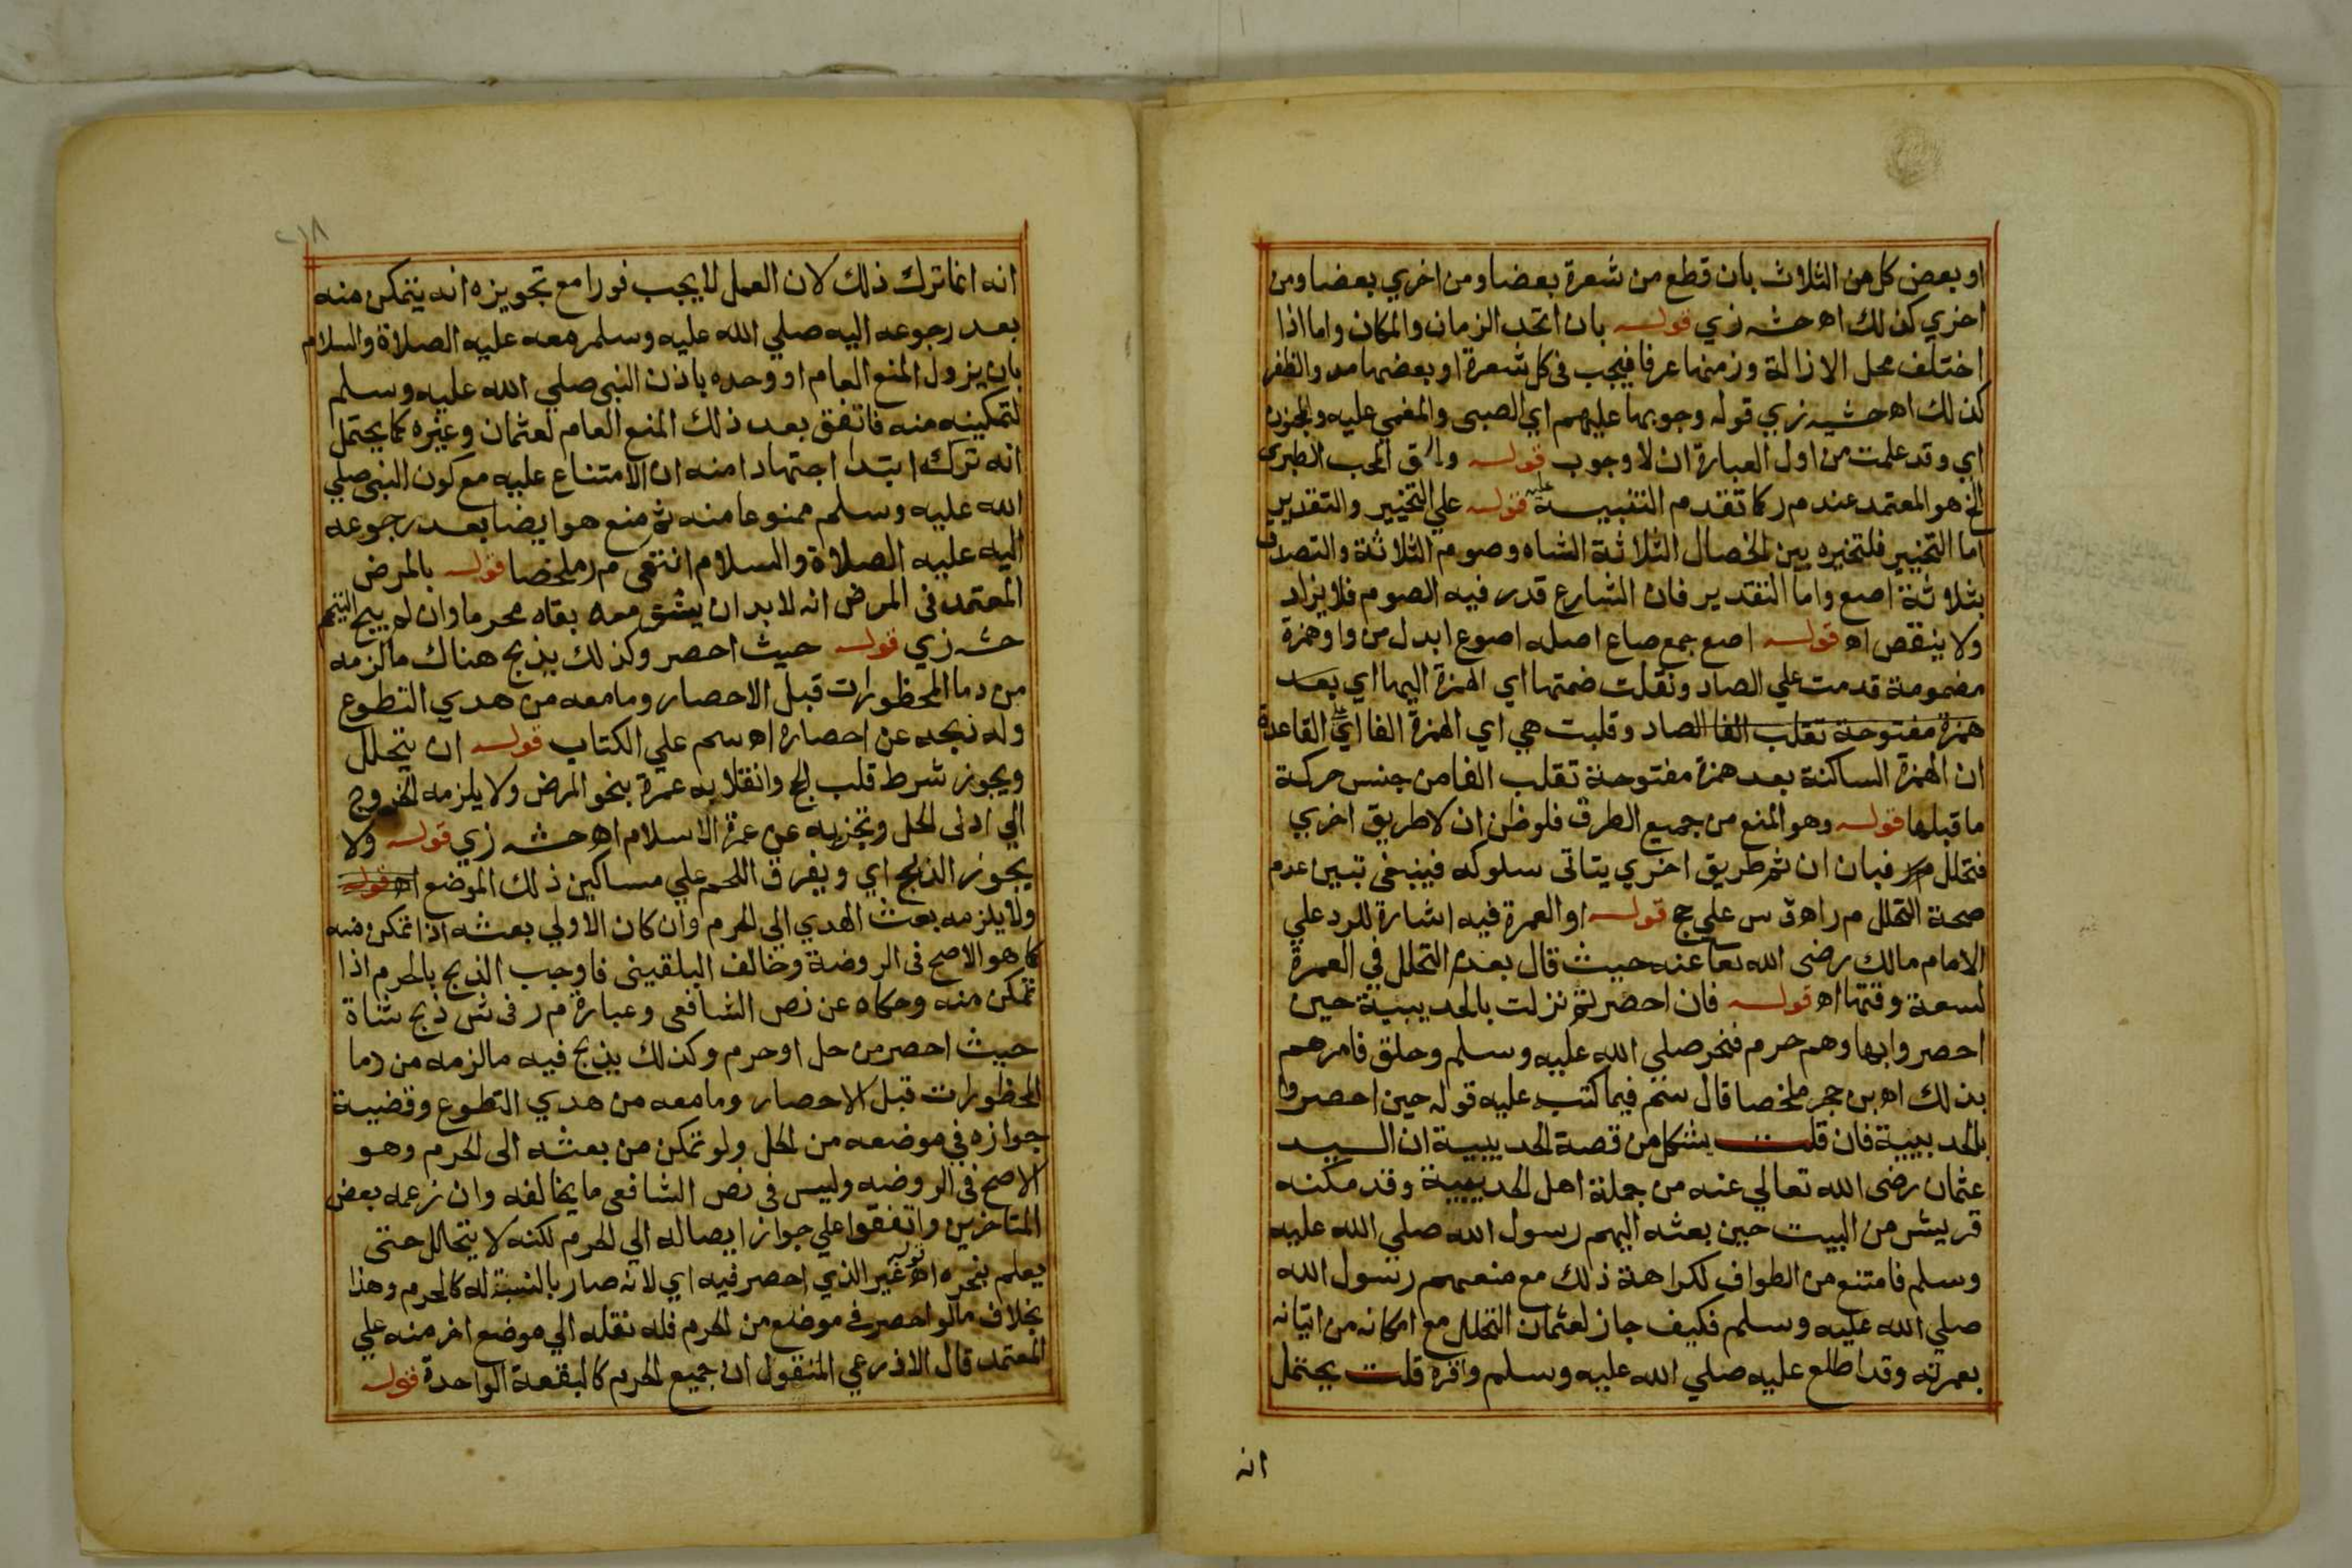 او بعض كل من الثلاث بان قطع من شعرة بعضا ومن اخري بعضا ومن
اخري كذلك اه حشه زي قوله بان اتحد الزمان والمكان واما اذا
اختلف محل الازالة وزمنها عرفا فيجب في كل شعرة او بعضها مد والظفر
كذلك اه حشيه زي قوله وجوبها عليهم اي الصبى والمغمي عليه والمجنون
اي وقد علمت من اول العبارة ان لا وجوب قوله المحب الطبري
الخ هو المعتمد عند م ر كما تقدم التنبيه عليه قوله علي التخيير والتقدير
اما التخيير فلتخيره بين الخصال الثلاثة الشاه وصوم الثلاثة والتصدق
بثلاثة اصع واما التقدير فان الشارع قدر فيه الصوم فلا يزاد
ولا ينقص اه قوله اصع جمع صاع اصله اصوع ابدل من واو همزة
مضمومة قدمت علي الصاد ونقلت ضمتها اي الهمزة اليها اي بعد
همزة مفتوحة تقلب الفا الصاد وقلبت هي اي الهمزة الفا اي القاعدة
ان الهمزة الساكنة بعد همزة مفتوحة تقلب الفا من جنس حركة
ما قبلها قوله وهو المنع من جميع الطرق فلو ظن ان لا طريق اخري
فتحلل فبان ان ثم طريق اخري يتاتى سلوكه فينبغي تبين عدم
صحة التحلل م ر اه ق س علي حج قوله او العمرة فيه اشارة للرد علي
الامام مالك رضى الله تعا عنه حيث قال بعدم التحلل في العمرة
لسعة وقتها اه قوله فان احصرتم نزلت بالحديبية حين
احصروا بها وهم حرم فنحر صلي الله عليه وسلم وحلق فامرهم
بذلك اه بن حجر ملخصا قال سم فيما كتب عليه قوله حين احصروا
بالحديبية فان قلت يشكل من قصة الحديبية ان السيد
عثمان رضى الله تعالي عنه من جملة اهل الحديبية وقد مكنه
قريش من البيت حين بعثه اليهم رسول الله صلي الله عليه
وسلم فامتنع من الطواف لكراهة ذلك مع منعهم رسول الله
صلي الله عليه وسلم فكيف جاز لعثمان التحلل مع امكانه من اتيانه
بعمرته وقد اطلع عليه صلي الله عليه وسلم واقره قلت يحتمل
انه
٢١٨
انه انما ترك ذلك لان العمل لا يجب فورا مع تجويزه انه يتمكن منه
بعد رجوعه اليه صلي الله عليه وسلم معه عليه الصلاة والسلام
بان يزول المنع العام او وحده باذن النبى صلي الله عليه وسلم
لتمكينه منه فاتفق بعد ذلك المنع العام لعثمان وغيره كما يحتمل
انه ترك ابتدا اجتهادا منه ان الامتناع عليه مع كون النبى صلي
الله عليه وسلم ممنوعا منه ثم منع هو ايضا بعد رجوعه
اليه عليه الصلاة والسلام انتهى م ر ملخصا قوله بالمرض
المعتمد في المرض انه لا بد ان يشق معه بقاه محرما وان لم يبح التيمم
حشه زي قوله حيث احصر وكذلك يذبح هناك ما لزمه
من دما المحظورات قبل الاحصار وما معه من هدي التطوع
وله ذبحه عن احصاره اه سم علي الكتاب قوله ان يتحلل
ويجوز شرط قلب الحج وانقلابه عمرة بنحو المرض ولا يلزمه الخروج
الي ادنى الحل وتجزيه عن عمرة الاسلام اه حشه زي قوله ولا
يجوز الذبح اي ويفرق اللحم علي مساكين ذلك الموضع اه قوله
ولا يلزمه بعث الهدي الي الحرم وان كان الاولي بعثه اذا تمكن منه
كما هو الاصح في الروضة وخالف البلقينى فاوجب الذبح بالحرم اذا
تمكن منه وحكاه عن نص الشافعى وعبارة م ر في ش ذبح شاة
حيث احصر من حل او حرم وكذلك يذبح فيه ما لزمه من دما
المحظورات قبل الاحصار وما معه من هدي التطوع وقضيية
جوازه في موضعه من الحل ولو تمكن من بعثه الى الحرم وهو
الاصح في الروضه وليس في نص الشافعى ما يخالفه وان زعمه بعض
المتاخرين واتفقوا علي جواز ايصاله الي الحرم لكنه لا يتحلل حتى
يعلم بنحره اه قوله غير الذي احصر فيه اي لانه صار بالنسبة له كالحرم وهذا
بخلاف ما لو احصر في موضع من الحرم فله نقله الي موضع اخر منه علي
المعتمد قال الاذرعي المنقول ان جميع الحرم كالبقعة الواحدة قوله